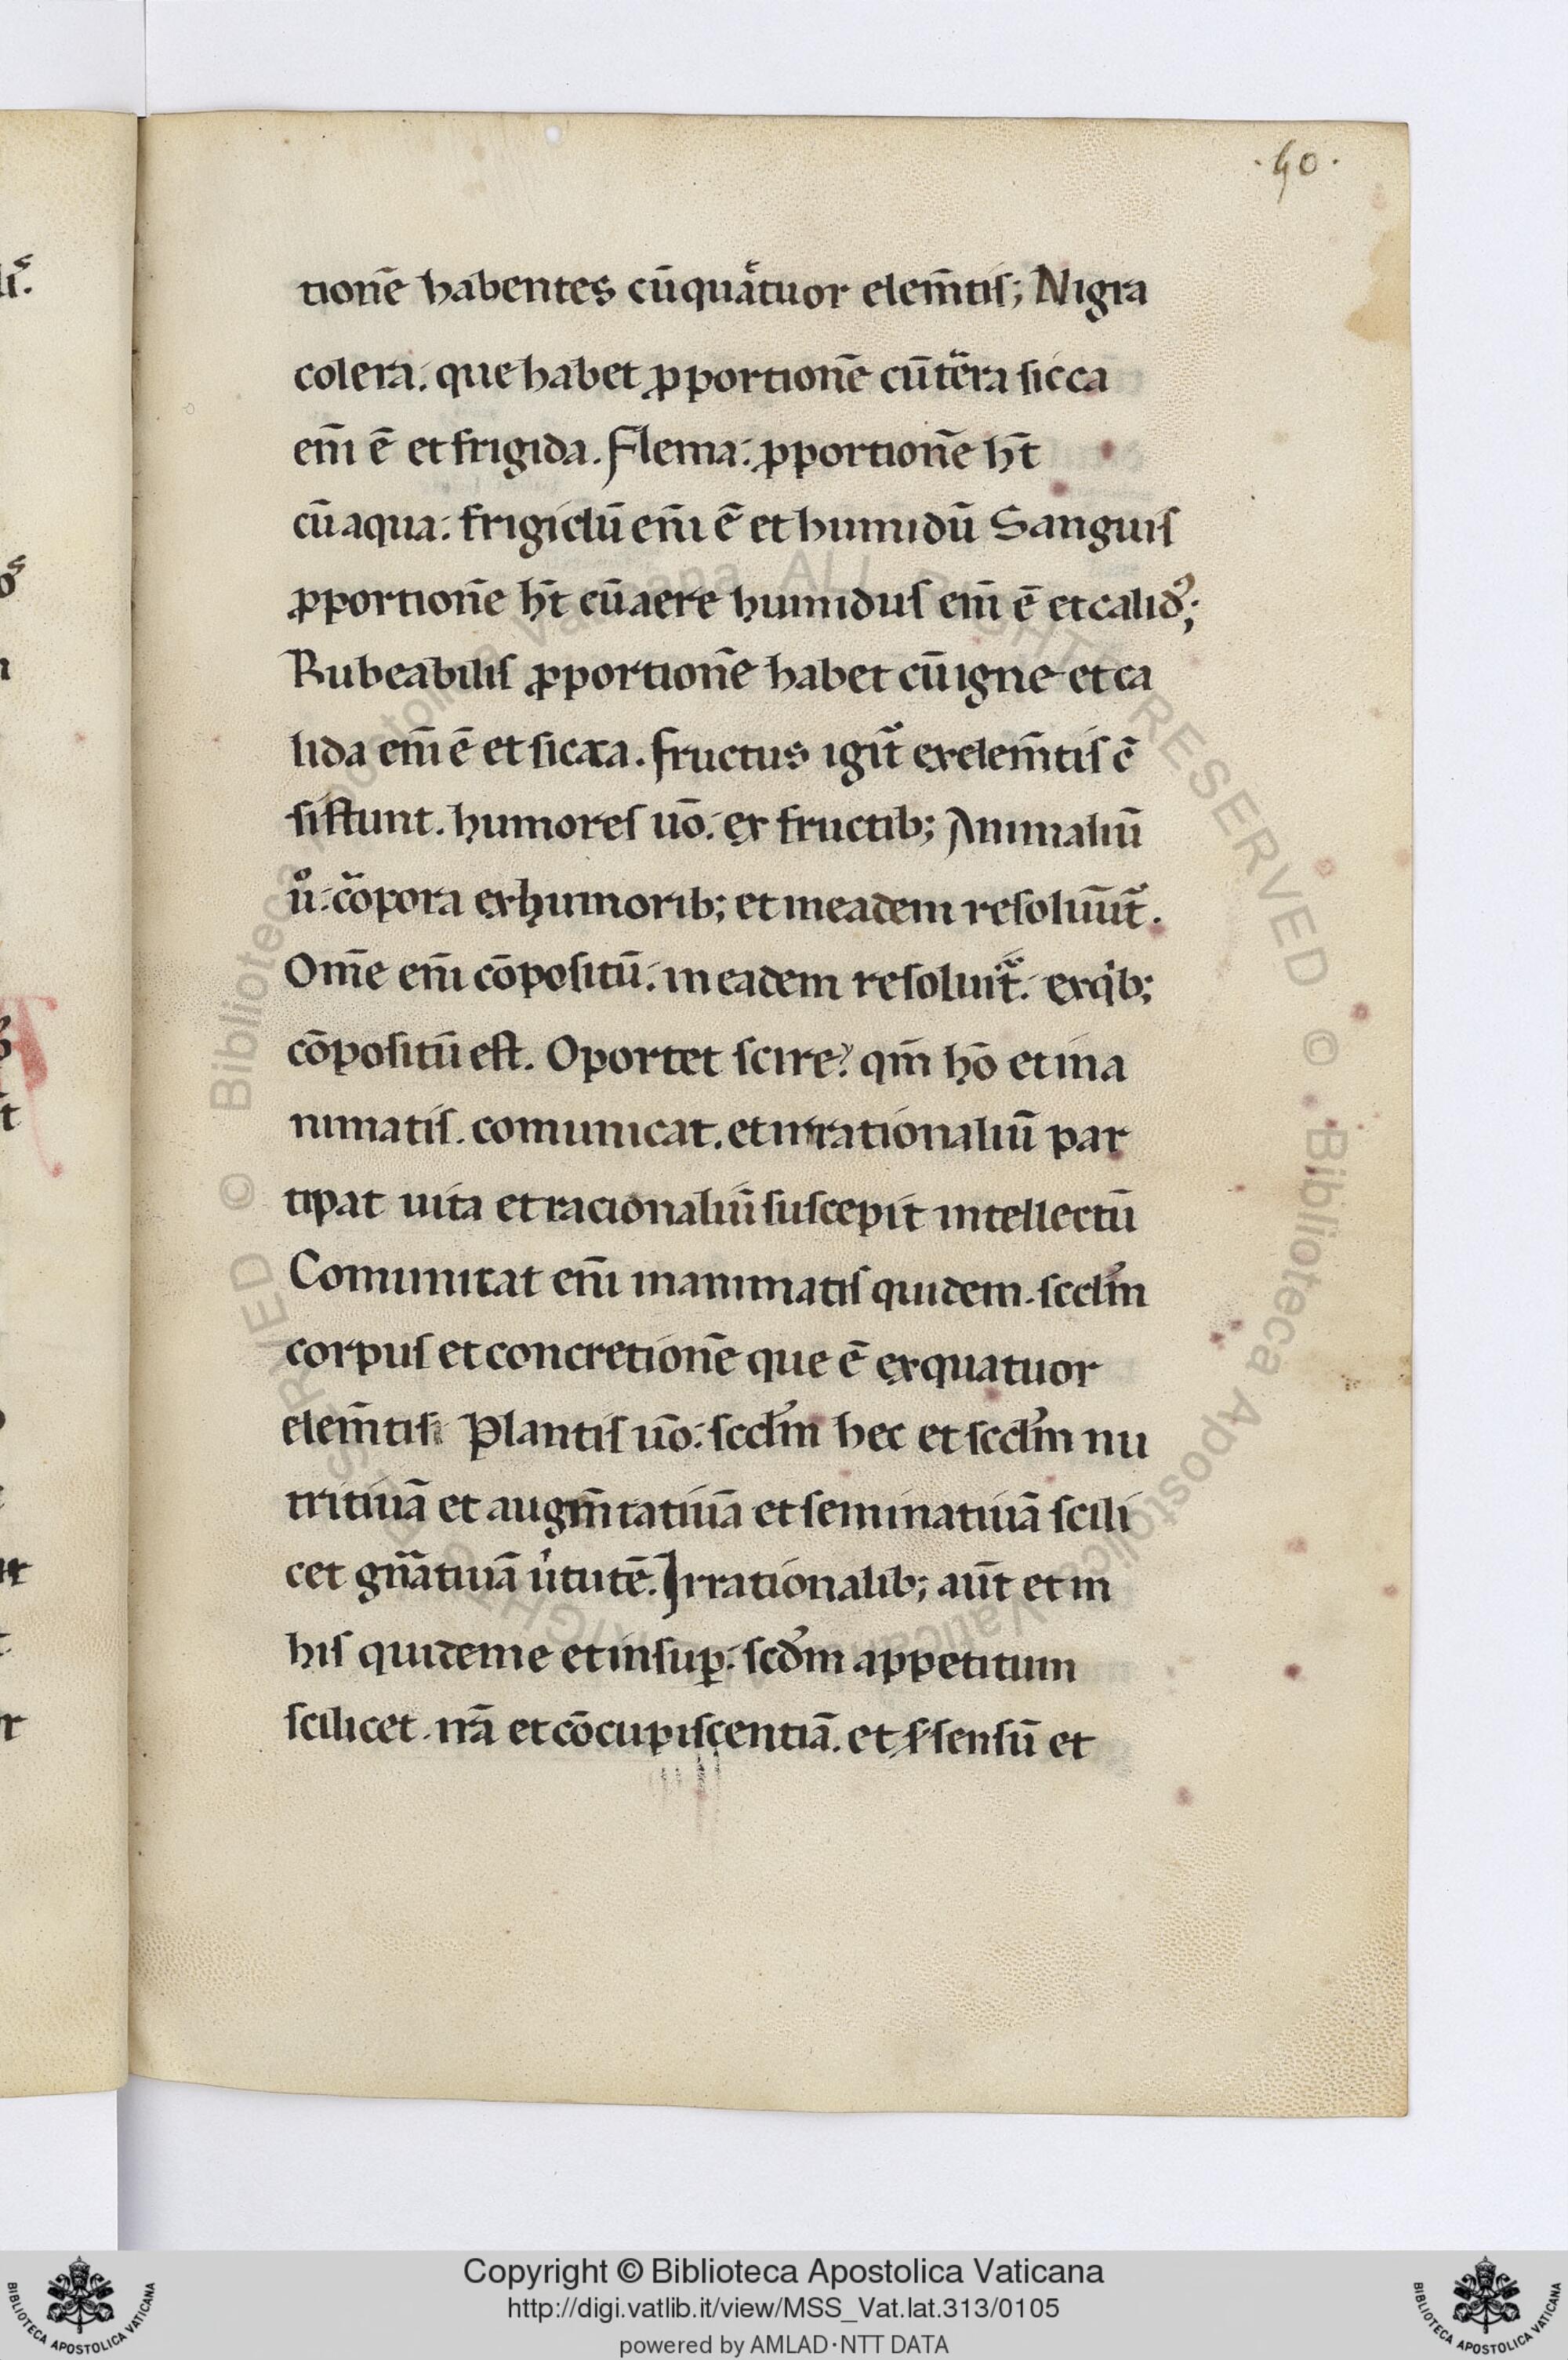 ·50·
tionē habentes cū quatuor elem̄tis; Nigra
colera. que habet ꝓportionē cū terra sicca
em̄ ē et frigida. Flema: ꝓportionē hт̄
cū aqua: frigidū em̄ ē et humidū Sanguis
ꝓportionē ht̄ cū aere humidus em̄ ē et calid᾽;
Rubea bilis ꝓportionē habet cū igne et ca
lida em̄ ē et sicca. fructus igit̄ ex elem̄tis cō
sistunt. humores uō: ex fructib; Animaliū
uͦ: corpora ex humorib; et in eadem resoluūt̄.
Om̄e em̄ cōpositū: in eadem resoluit̄: ex qͥb;
cōpositū est. Oportet scire? qm̄ hō et ina
nimatis. comunicat. et irrationaliū par
tipat uita et racionaliū suscepit intellectū
Comunicat em̄ inanimatis quidem. scdm̄
corpus et concretionē que ē ex quatuor
elem̄tis Plantis uō: scdm̄ hec et scdm̄ nu
tritiuā et augm̄tatiuā et seminatiuā scili
cet gn̄atiuā uͥtutē. Irrationalib; aūt et in
his quidem e et insuꝑ: scdm̄ appetitum
scilicet irā et cōcupiscentiā. et s. sensū et
Copyright © Biblioteca Apostolica Vaticana
http://digi.vatlib.it/view/MSS_Vat.lat.313/0105
powered by AMLAD·NTT DATA